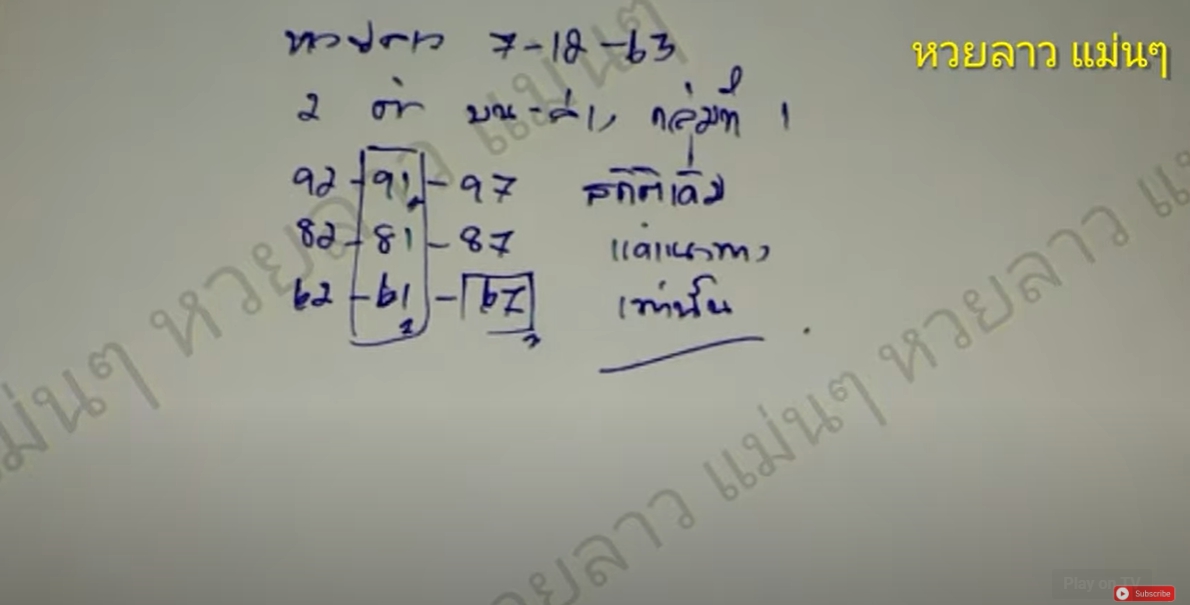 หวยลาว 7-12-63
หวยลาว แม่นๆ
2 ตัว บน-ล่าง, กลุ่มที่ 1
92-91-97 สถิติเดิม
82-81-87
62-61-67 เท่านั้น
แม่นๆ หวยลาว แม่นๆ
หวยลาว แม่นๆ หวยลาว แม่นๆ
Play on TV
Subscribe